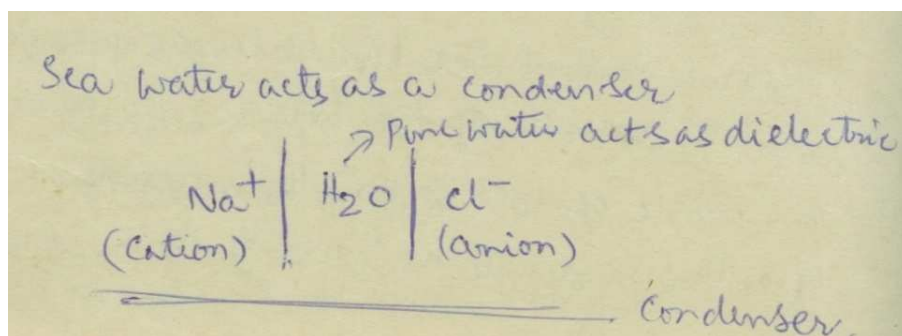 Sea water acts as a condenser
Pure water acts as dielectric
Na+ | H2O | Cl-
(Cation) (anion)
Condenser